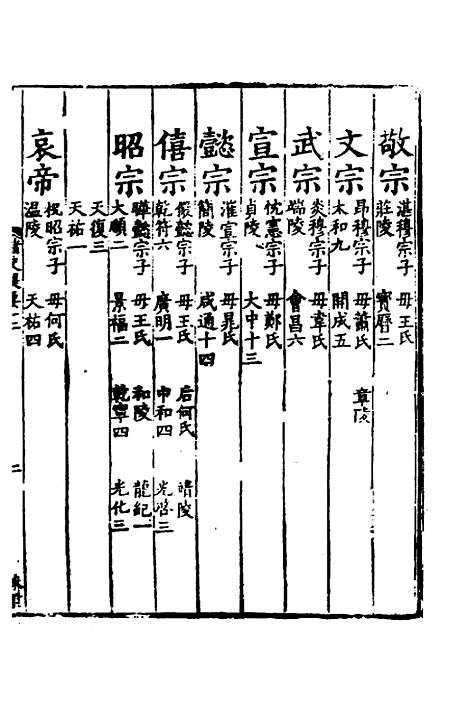 敬宗
湛穆宗子 母王氏
莊陵 寶曆二
文宗
昂穆宗子 母蕭氏 章陵
太和九 開成五
武宗
炎穆宗子 母韋氏
端陵 會昌六
宣宗
忱憲宗子 母鄭氏
貞陵 大中十三
懿宗
漼宣宗子 母晁氏
簡陵 咸通十四
僖宗
儼懿宗子 母王氏 后何氏 靖陵
乾符六 廣明一 中和四 光啓三
昭宗
曄懿宗子 母王氏 和陵 龍紀一
大順二 景福二 乾寧四 光化三
天復三
天祐一
哀帝
柷昭宗子 母何氏
温陵 天祐四
二